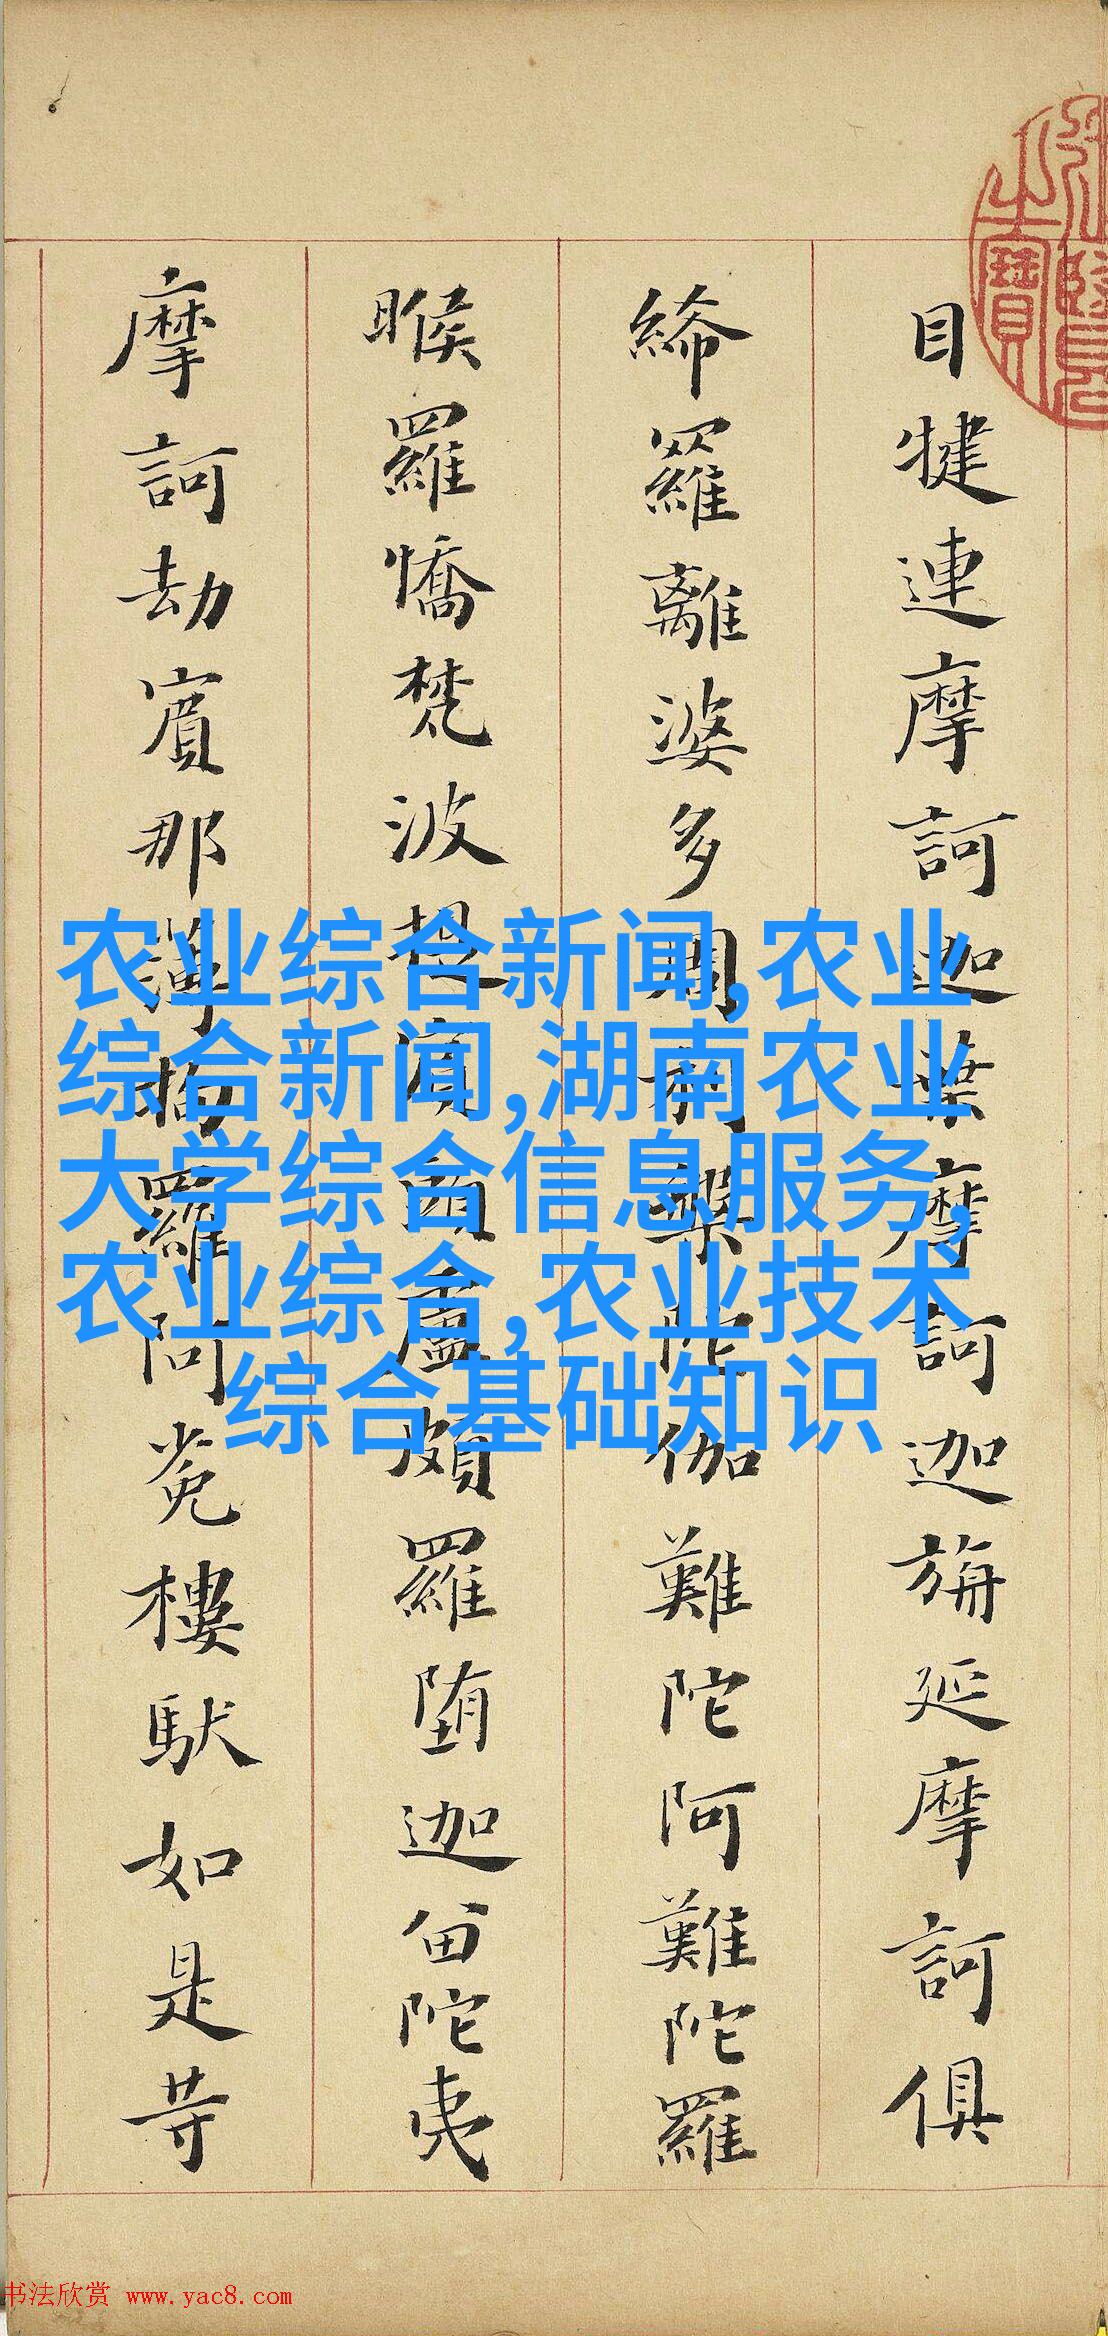 目犍連摩訶迦葉摩訶迦旃延摩訶俱
絺羅離婆多周利槃陀伽難陀阿難陀羅
睺羅憍梵波提賓頭盧頗羅堕迦留陀夷
摩訶劫賓那薄拘羅阿㝹樓馱如是等
农业综合新闻,农业
综合新闻,湖南农业
大学综合信息服务,
农业综合,农业技术
综合基础知识
书法欣赏 www.yac8.com